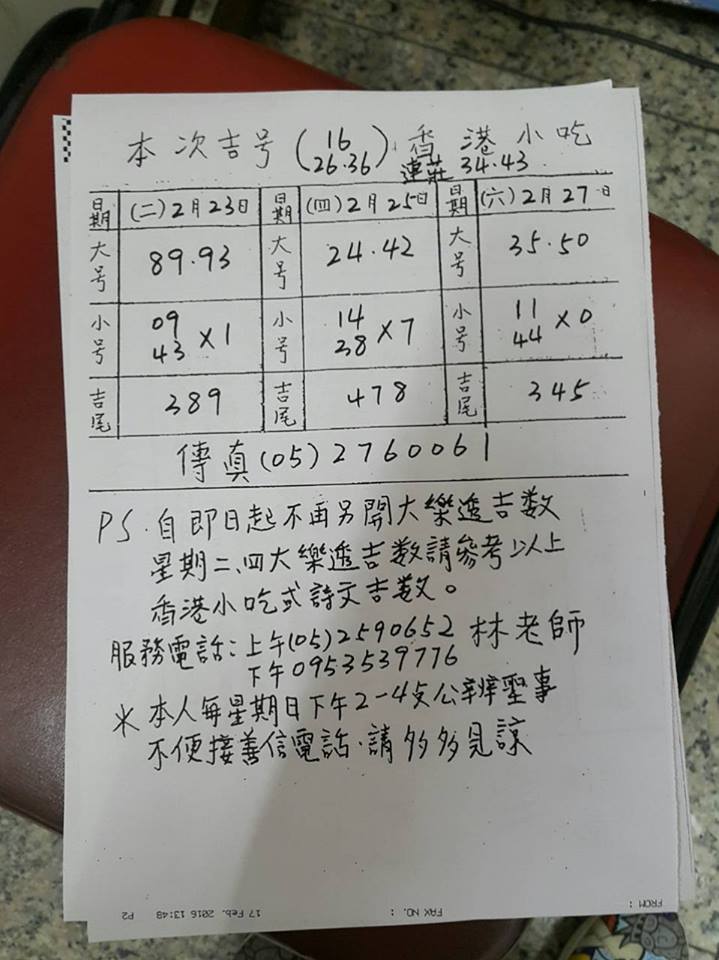 本次吉号(16 26·36)香港小吃
連莊 34·43
日期 (二)2月23日 日期 (四)2月25日 日期 (六)2月27日
大号 89·93 大号 24·42 大号 35·50
小号 09 43 X1 小号 14 38 X7 小号 11 44 X0
吉尾 389 吉尾 478 吉尾 345
傳真(05)2760061
PS·自即日起不再另開大樂透吉数
星期二、四大樂透吉数請參考以上
香港小吃式詩文吉数。
服務電話:上午(05)2590652 林老師
下午0953539776
*本人每星期日下午2-4点公辦聖事
不便接善信電話·請多多見諒
FROM : FAX NO. : 17 Feb. 2016 13:48 P2